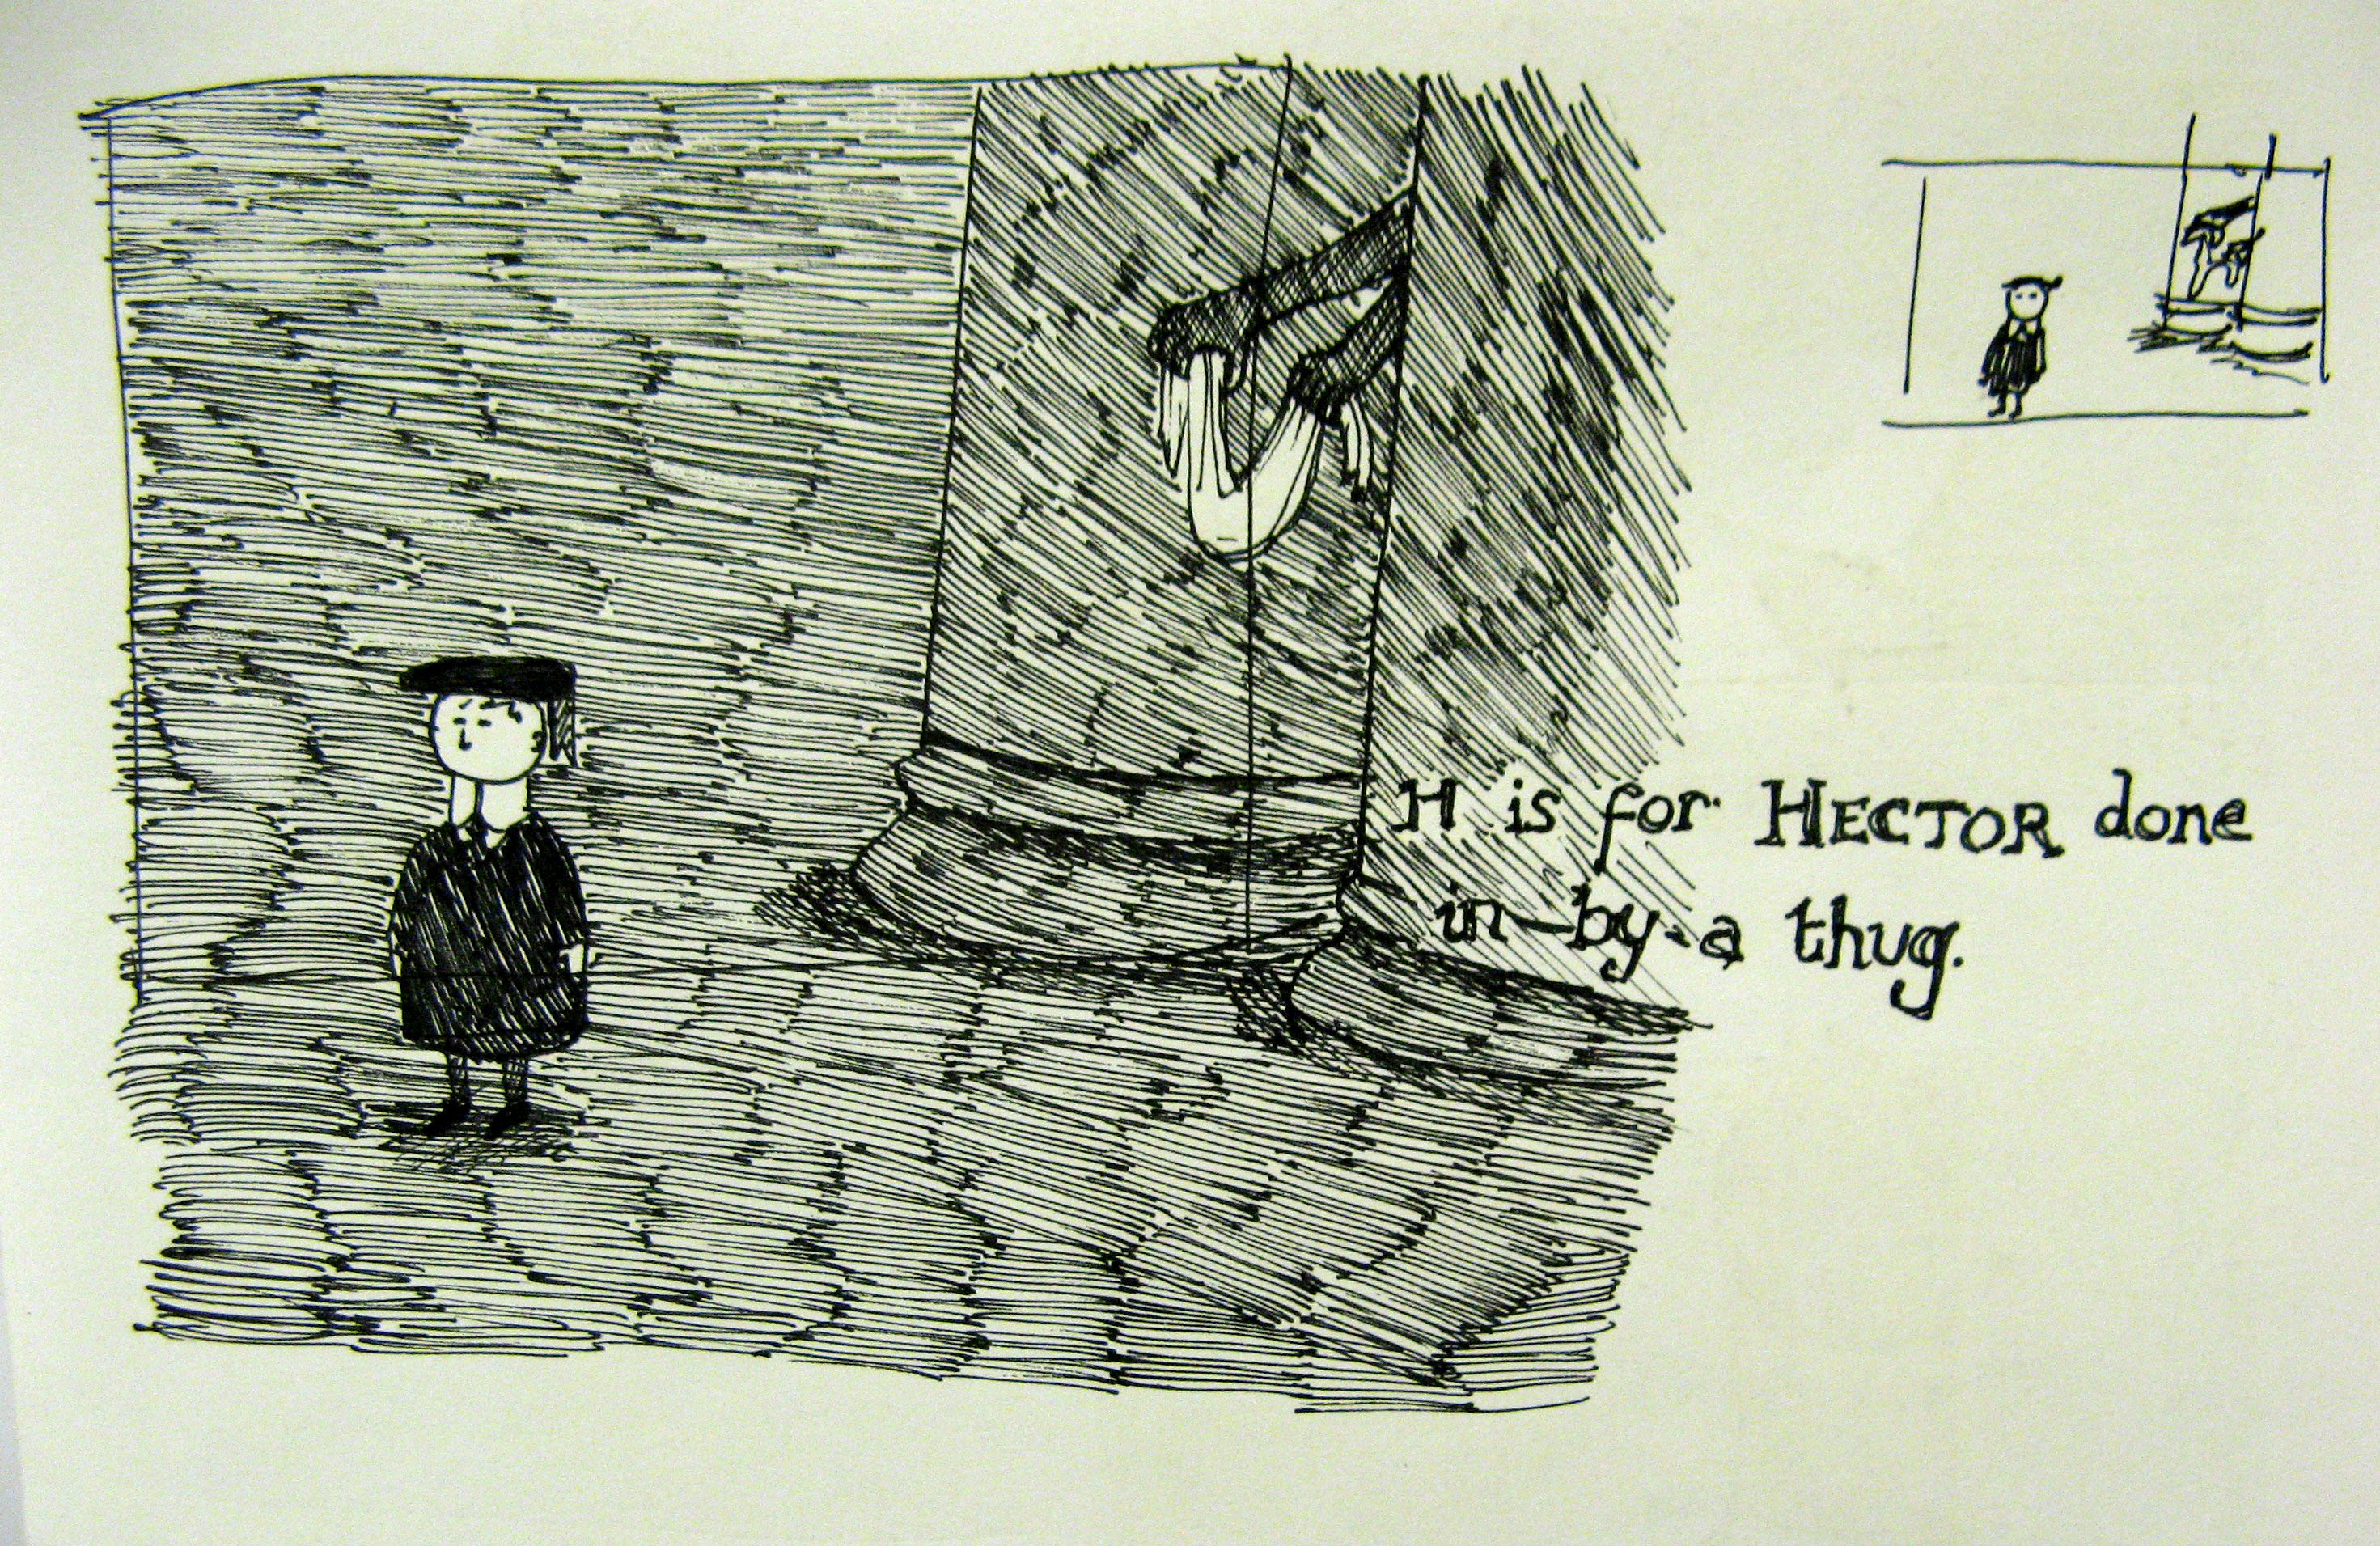 H is for HECTOR done
in-by-a thug.